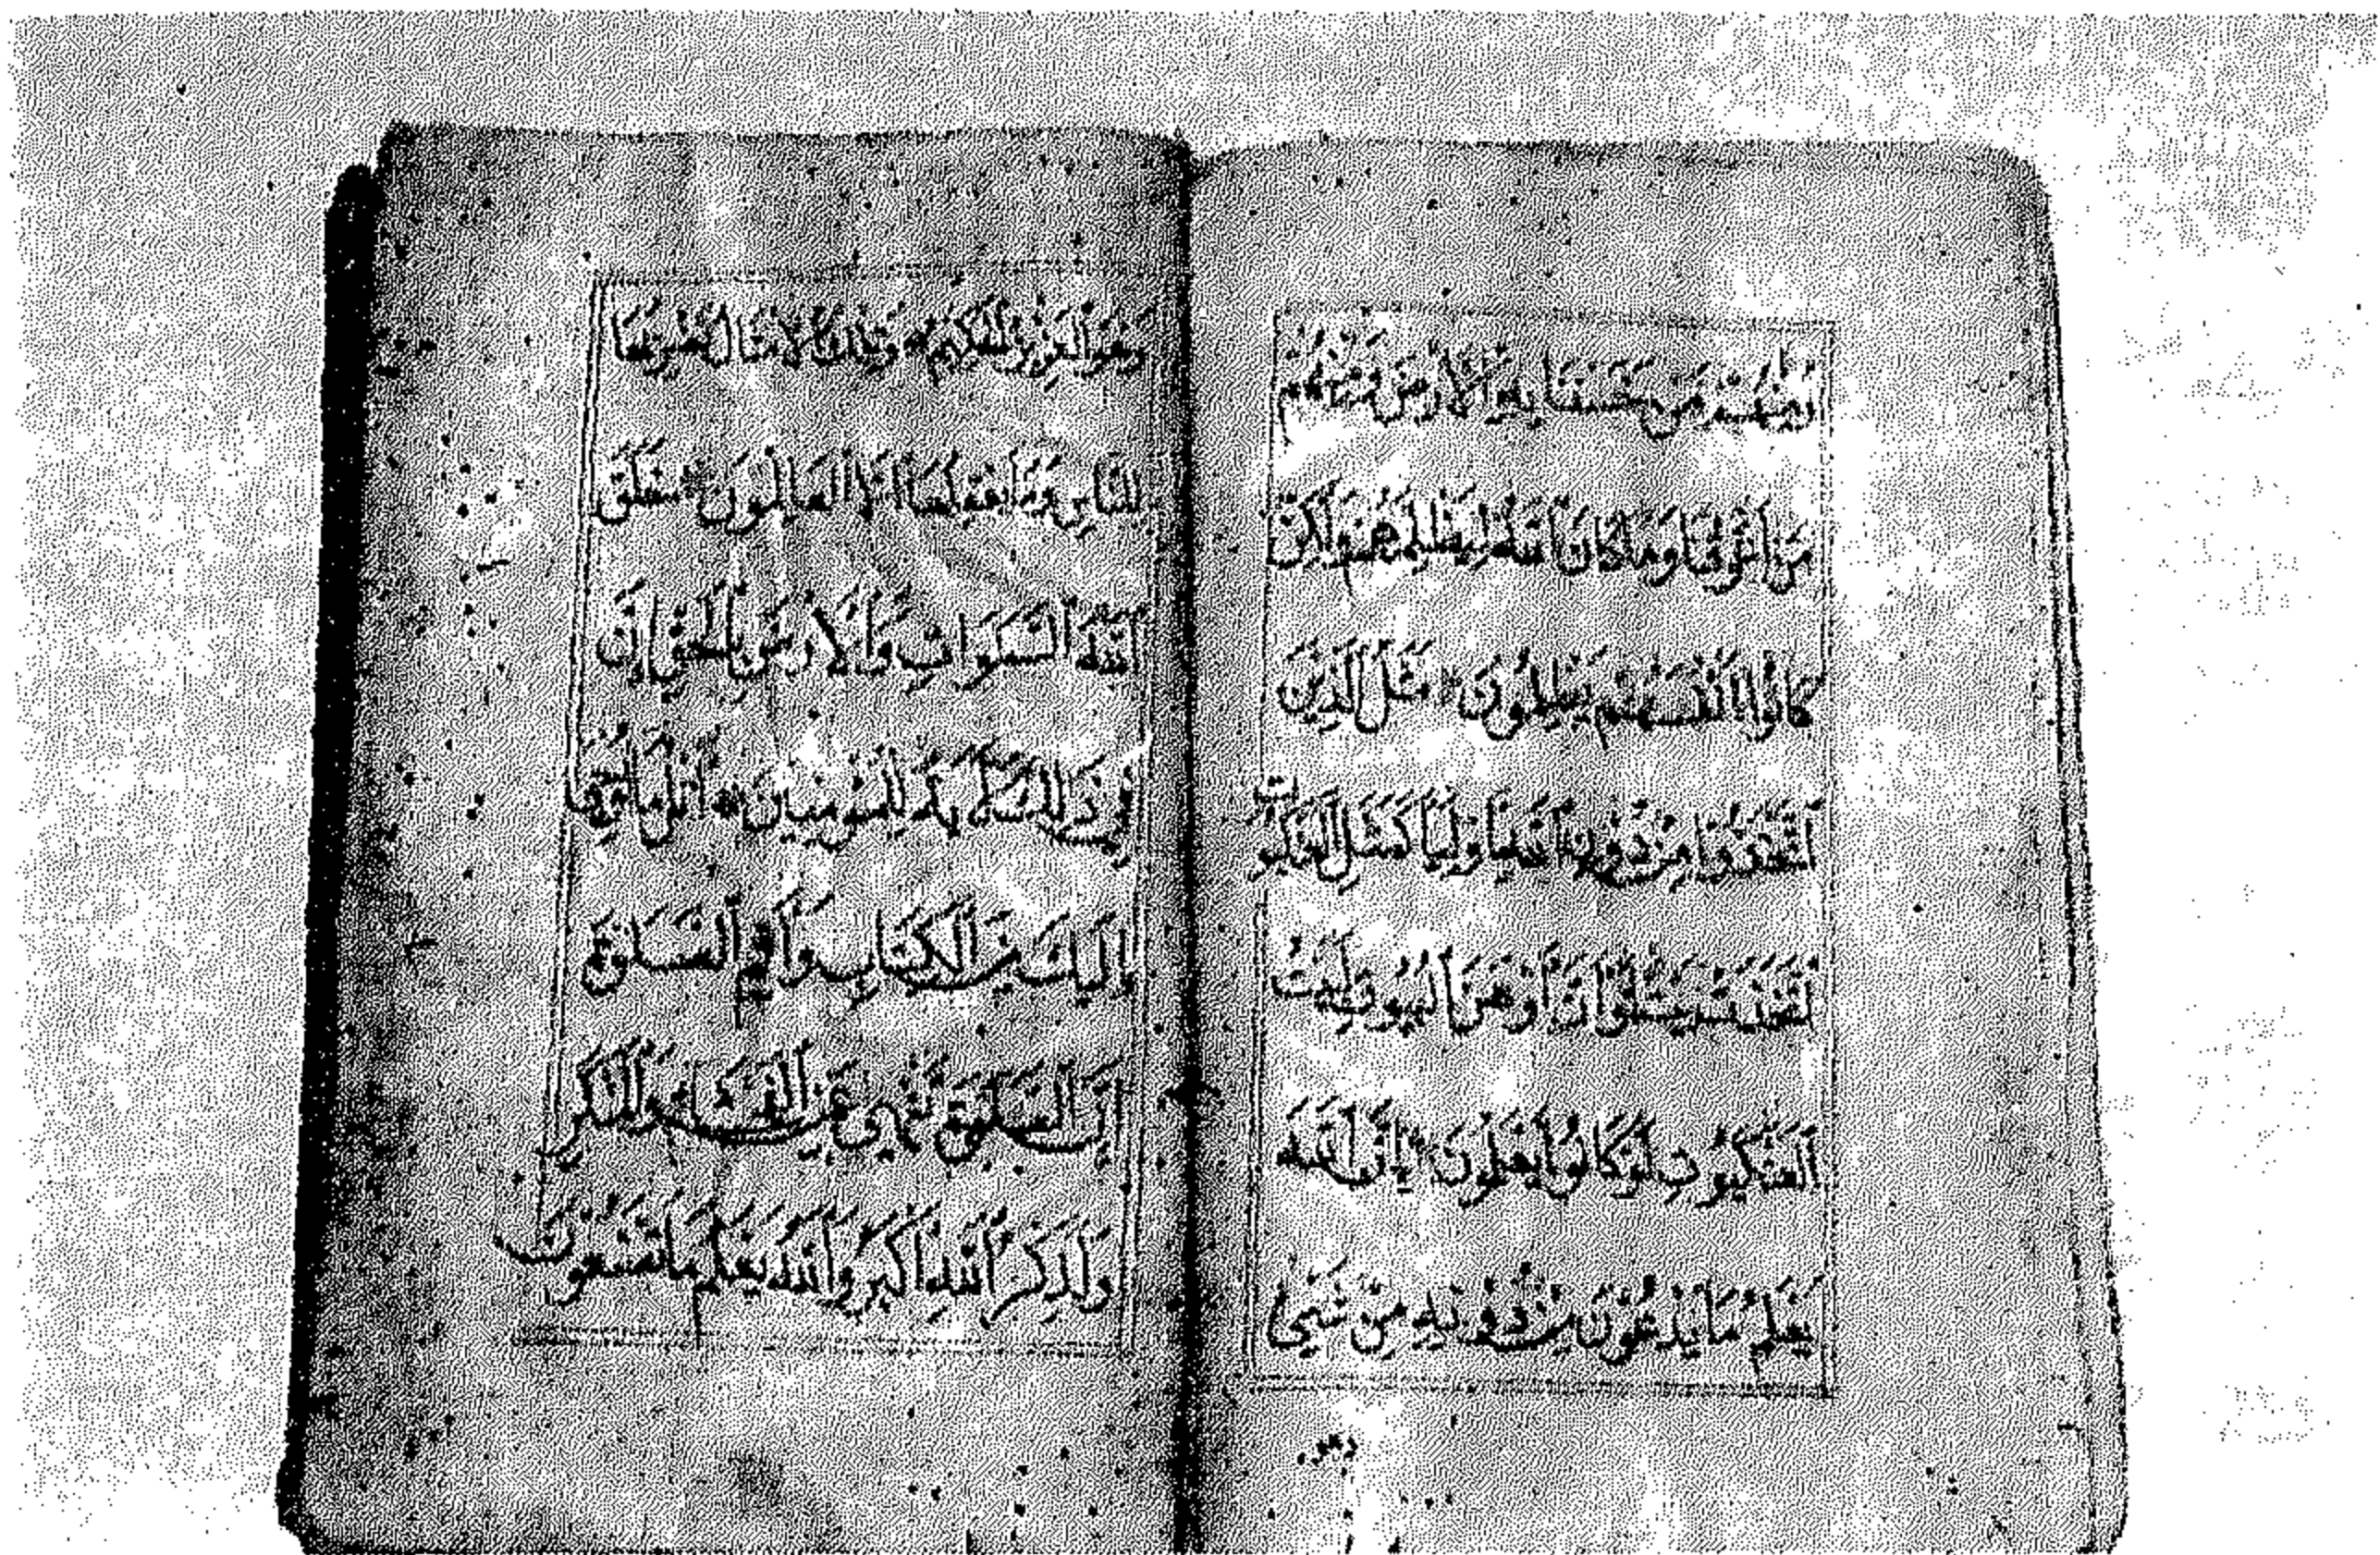 وَمِنْهُمْ مَنْ خَسَفْنَا بِهِ الْأَرْضَ وَمِنْهُمْ
مَنْ أَغْرَقْنَا وَمَا كَانَ اللَّهُ لِيَظْلِمَهُمْ وَلَكِنْ
كَانُوا أَنْفُسَهُمْ يَظْلِمُونَ مَثَلُ الَّذِينَ
اتَّخَذُوا مِنْ دُونِ اللَّهِ أَوْلِيَاءَ كَمَثَلِ الْعَنْكَبُوتِ
اتَّخَذَتْ بَيْتًا وَإِنَّ أَوْهَنَ الْبُيُوتِ لَبَيْتُ
الْعَنْكَبُوتِ لَوْ كَانُوا يَعْلَمُونَ إِنَّ اللَّهَ
يَعْلَمُ مَا يَدْعُونَ مِنْ دُونِهِ مِنْ شَيْءٍ
وهو
وَهُوَ الْعَزِيزُ الْحَكِيمُ وَتِلْكَ الْأَمْثَالُ نَضْرِبُهَا
لِلنَّاسِ وَمَا يَعْقِلُهَا إِلَّا الْعَالِمُونَ خَلَقَ
اللَّهُ السَّمَوَاتِ وَالْأَرْضَ بِالْحَقِّ إِنَّ
فِي ذَلِكَ لَآيَةً لِلْمُؤْمِنِينَ اتْلُ مَا أُوحِيَ
إِلَيْكَ مِنَ الْكِتَابِ وَأَقِمِ الصَّلَوةَ
إِنَّ الصَّلَوةَ تَنْهَى عَنِ الْفَحْشَاءِ وَالْمُنْكَرِ
وَلَذِكْرُ اللَّهِ أَكْبَرُ وَاللَّهُ يَعْلَمُ مَا تَصْنَعُونَ